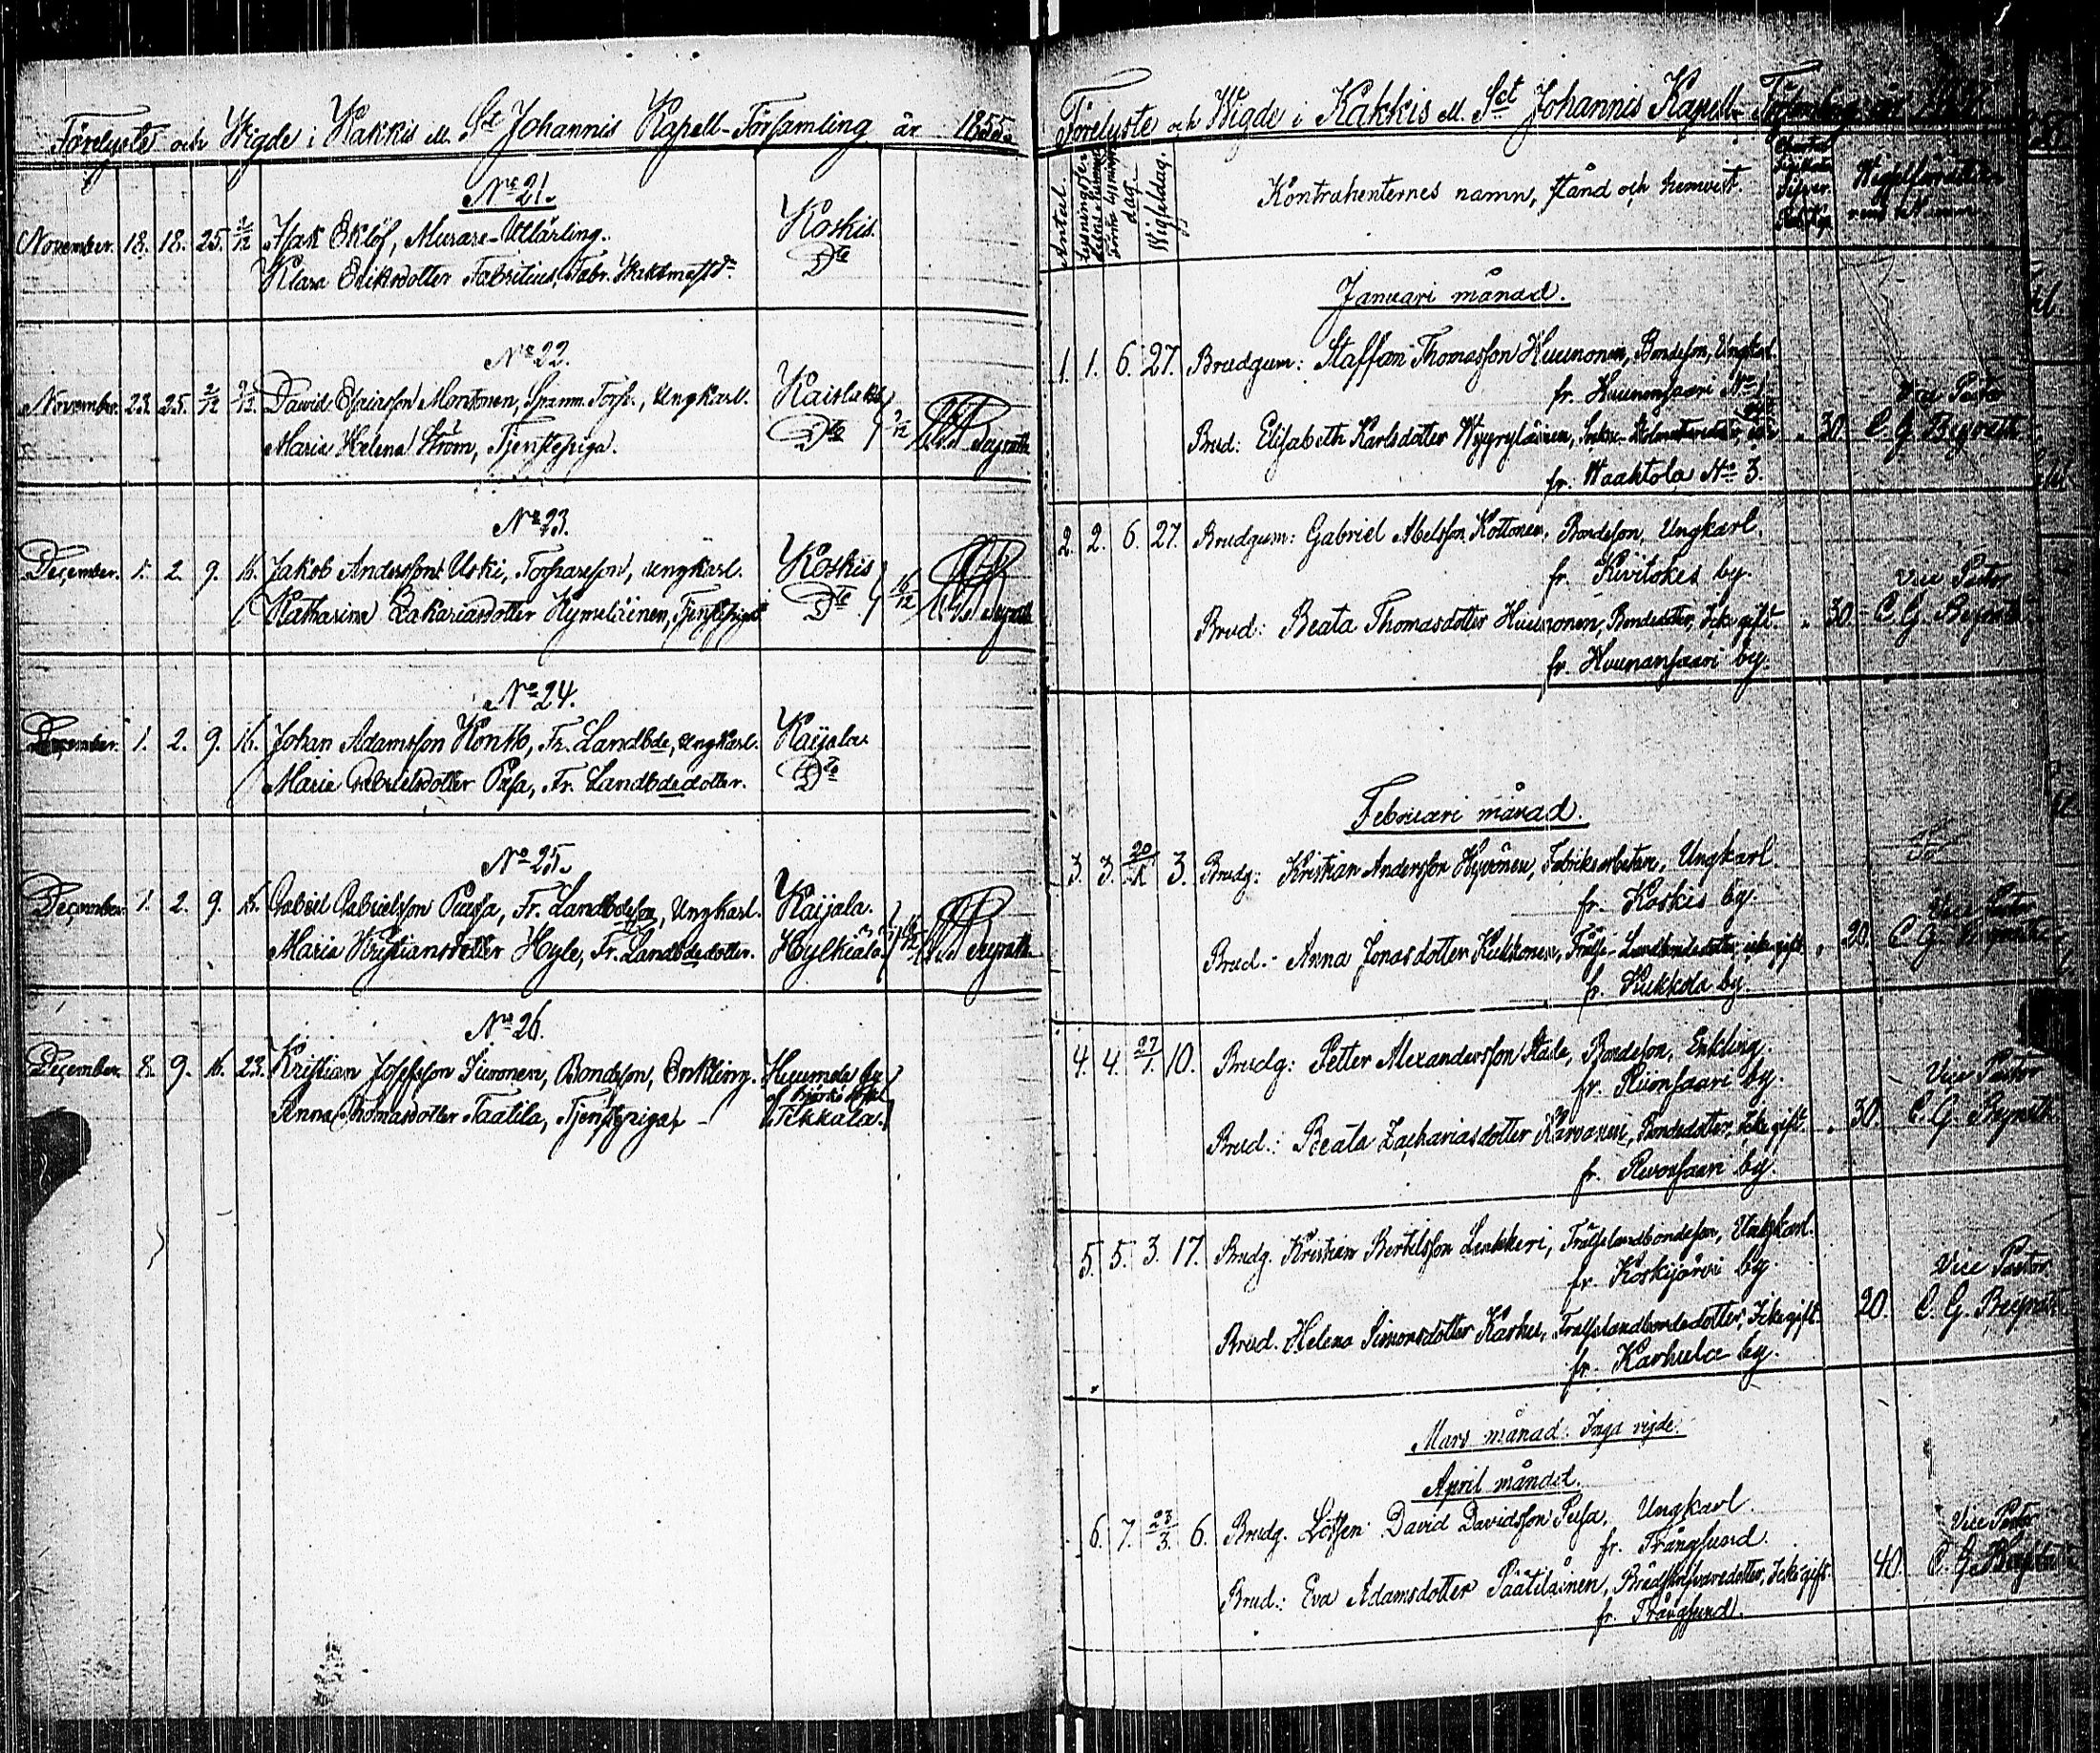 Förelyste och Wigde i Kakkis el. Sct Johannis Kapell-Församling år 1855.
No 21.
November. 18. 18. 25. 2/12 Isak Eklöf, Murare-Utlärling. Koskis.
Klara Eriksdotter Fabritius, Fabr. Waktmest. Dr Dto
No 22.
November. 23. 25. 2/12 9/12 David Esaiasson Montonen, Ungkarl. Kaislaks
Maria Helena Ström, Tjenstepiga. Dto
No 23.
December. 1. 2. 9. 16. Jakob Andersson Uski, Torpareson, Ungkarl. Koskis
Katharina Zakariasdotter Hymeläinen, Tjenstepiga Dto 16/12
No 24.
December. 1. 2. 9. 16. Johan Adamsson Kontto, Fr. Landbde, Ungkarl. Kaijala.
Maria Gabrielsdotter Pusa, Fr. Landbdedotter. Dto
No 25.
December. 1. 2. 9. 16. Gabriel Gabrielsson Pusa, Fr. Landbdeson, Ungkarl. Kaijala.
Maria Kristiansdotter Hyle, Fr. Landbdedotter. Hylkiälä 16/12
No 26.
December. 8. 9. 16. 23. Kristian Josefsson Siuronen, Bondeson, Enkling. by
Anna Thomasdotter Taatila, Tjenstepiga, Tikkala.
Förelyste och Wigde i Kakkis el. Sct Johannis Kapell-Församling år
Antal. Wigseldag. Kontrahenternes namn, stånd och hemvist.
Januari månad.
1. 1. 6. 27. Brudgum: Staffan Thomasson Huunonen, Bondeson, Ungkarl.
fr. Huunonsaari No 1
Brud: Elisabeth Karlsdotter 30. Vice Pastor C. G. Beyrath
fr. Waaktola No 3.
2. 2. 6. 27. Brudgum: Gabriel Abelsson Kottonen, Bondeson, Ungkarl.
fr. Revitokes by.
Brud: Beata Thomasdotter Huunonen, Bondedotter, Icke gift. 30. Vice Pastor C. G. Beyrath
fr. Huunansaari by.
Februari månad.
3. 3. 20/1 3. Brudg: Kristian Andersson Hyvönen, Fabriksarbetare, Ungkarl
fr. Koskis by.
Brud: Anna Jonasdotter Kukkonen, Frälse-Landbondedotter, icke gift. 20. Vice Pastor C. G. Beyrath
fr. Kukkola by.
4. 4. 27/1 10. Brudg: Petter Alexandersson Stade, Bondeson, Enkling.
fr. Revonsaari by.
Brud: Beata Zachariasdotter Karvanen, Bondedotter, Icke gift. 30. Vice Pastor C. G. Beyrath
fr. Revonsaari by.
5. 5. 3. 17. Brudg. Kristian Bertilsson Lenkkeri, Frälselandbondeson, Ungkarl.
fr. Koskijärvi by.
Brud. Helena Simonsdotter Karhu, Frälselandbondedotter, Icke gift. 20. Vice Pastor C. G. Beyrath
fr. Karhula by.
Mars månad. Inga vigde.
April månad.
6. 7. 23/3. 6. Brudg. Lotsen David Davidsson Pusa, Ungkarl.
fr. Trångsund.
Brud: Eva Adamsdotter Päätiläinen, Icke gift. 40. Vice Pastor C. G. Beyrath
fr. Trångsund.